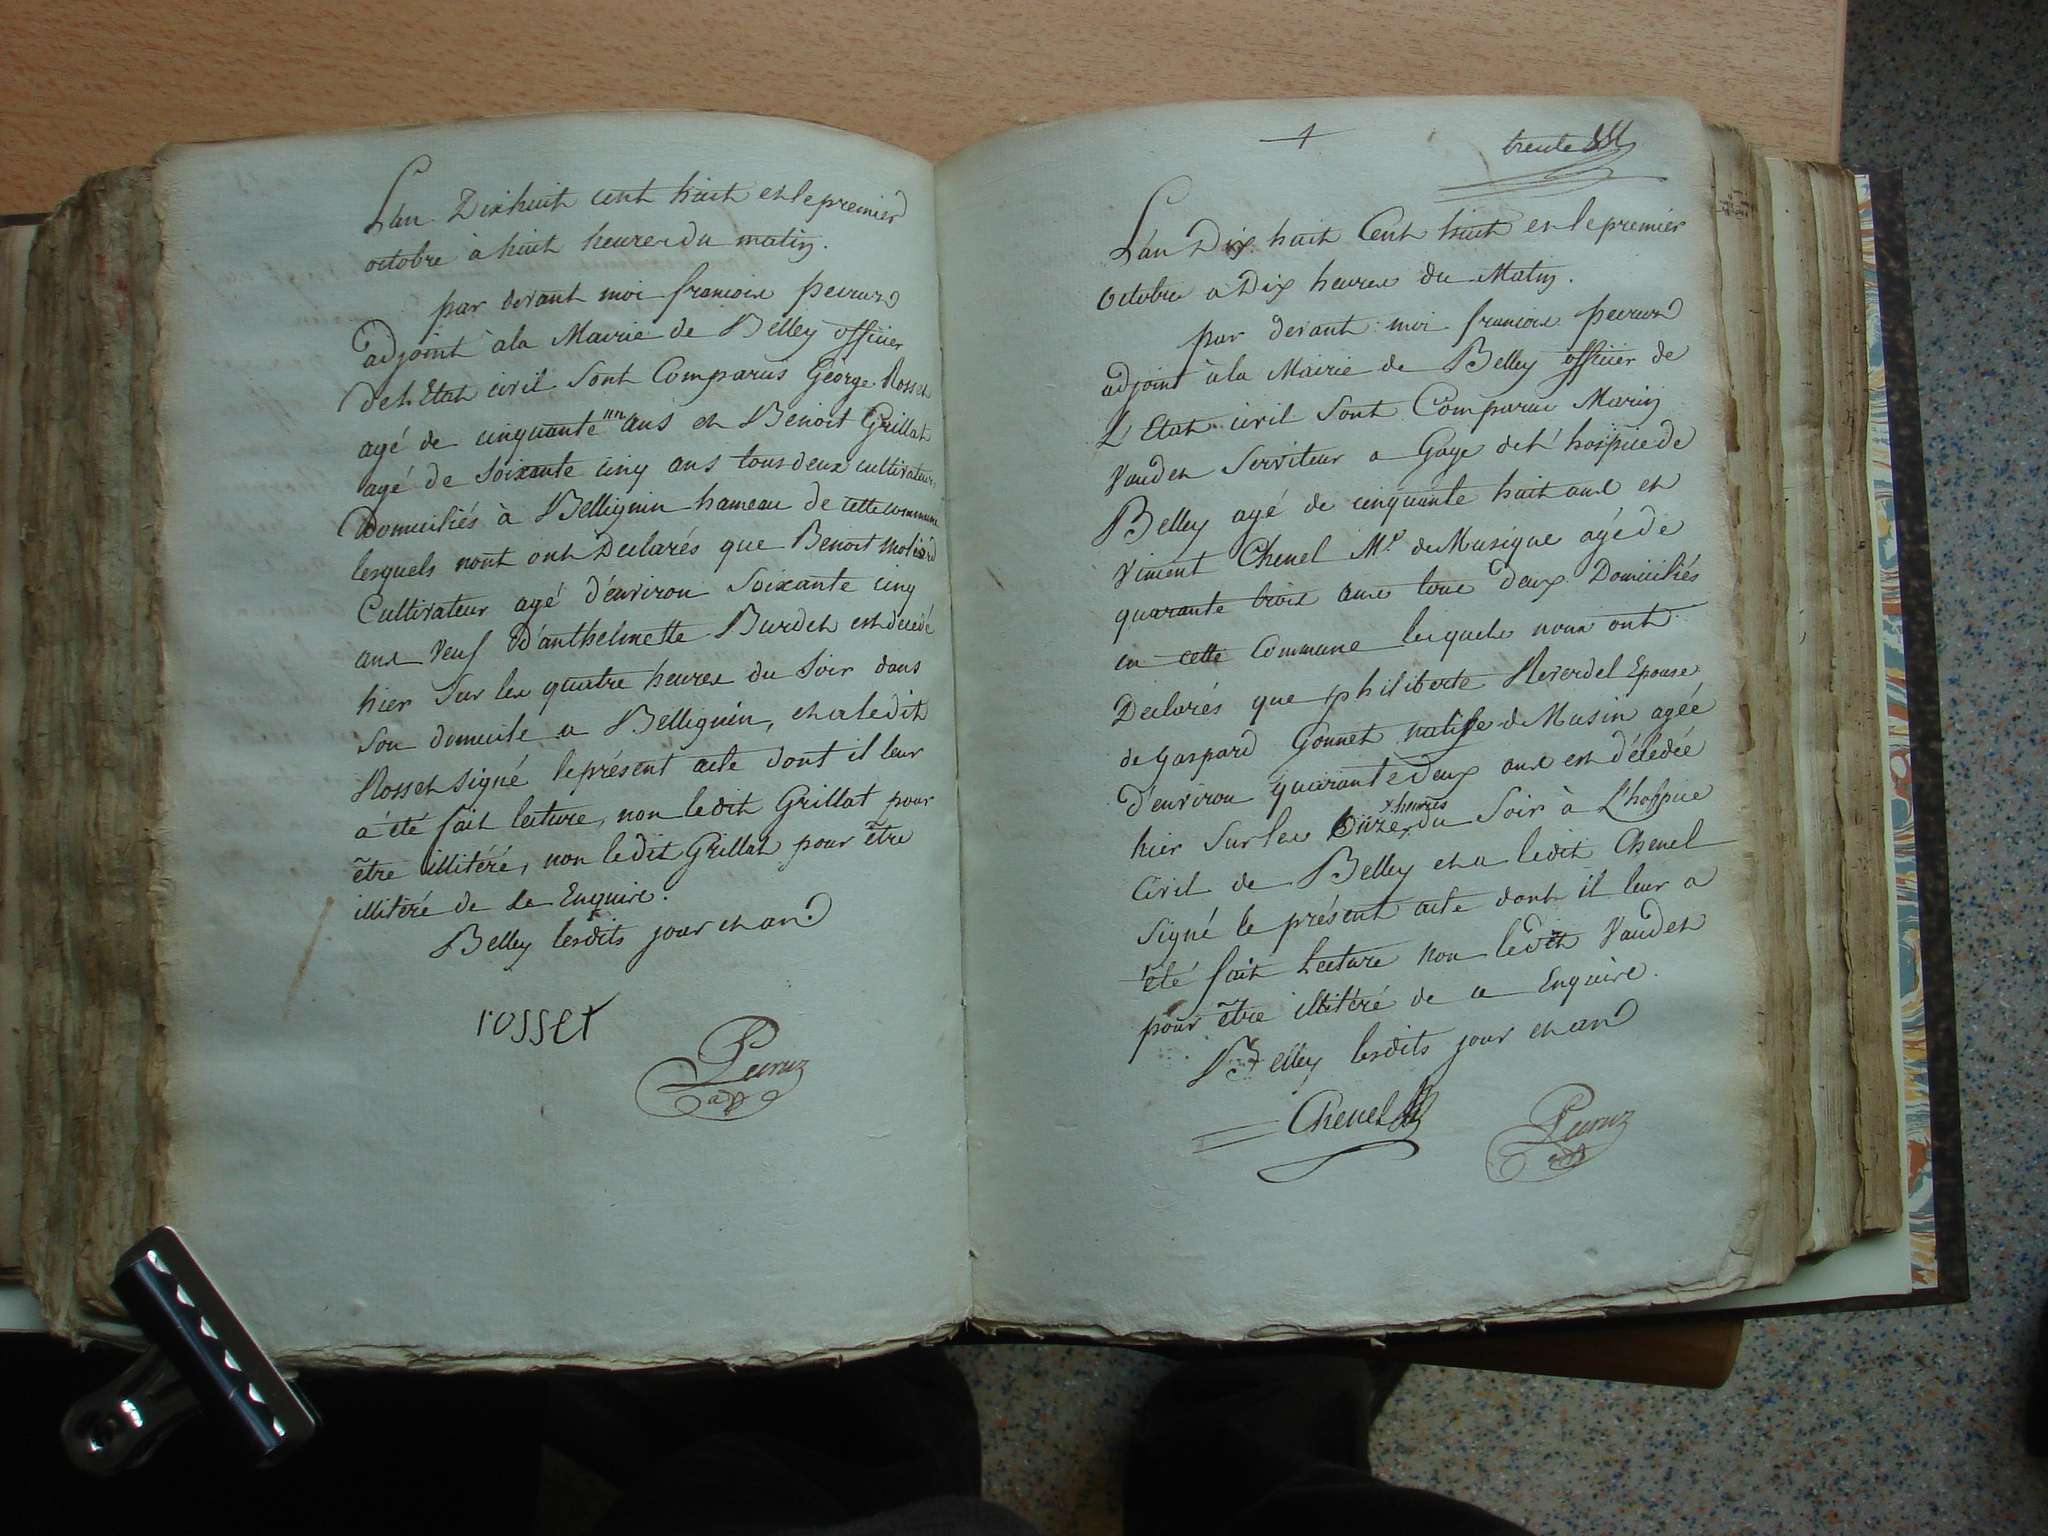 L'an Dix huit cent huit et le premier
octobre à huit heures du matin.
par devant moi francois peuruz
adjoint à la Mairie de Belley officier
de L'Etat civil sont Comparus George Rosset
agé de cinquante un ans et Benoit Grillat
agé de soixante cinq ans tous deux cultivateurs
Domiciliés à Bellignin hameau de cette commune
lesquels nont ont Declarés que Benoit
Cultivateur agé d'environ Soixante cinq
ans Veuf D'anthelmette Burdet est décédé
hier Sur les quatre heures du Soir dans
son domicile a Bellignin, et a ledit
Rosset signé le présent acte dont il leur
a été fait lecture, non ledit Grillat pour
être illitéré, non ledit Grillat pour être
illitéré de Enquire.
Belley lesdits jour et an
rosset
Peuruz
adj
trente
L'an Dix huit Cent huit et le premier
Octobre a Dix heures du Matin.
par devant moi francois peuruz
adjoint à la Mairie de Belley officier de
L'Etat civil sont Comparus Marin
Vaudet Serviteur a Gage de L'hospice de
Belley agé de cinquante huit ans et
Vincent Chenel Me de Musique agé de
quarante trois ans tous deux Domiciliés
en cette Commune lesquels nous ont
Declarés que philiberte Reverdel Epouse
de Gaspard Gonnet native de Musin agée
D'environ quarante deux ans est décédée
heures
hier Sur les onze du Soir à L'hospice
Civil de Belley et a ledit Chenel
Signé le présent acte dont il leur a
été fait Lecture non ledit Vaudet
pour être illitéré de ce Enquire.
Belley lesdits jour et an
Chenel
Peuruz
adj